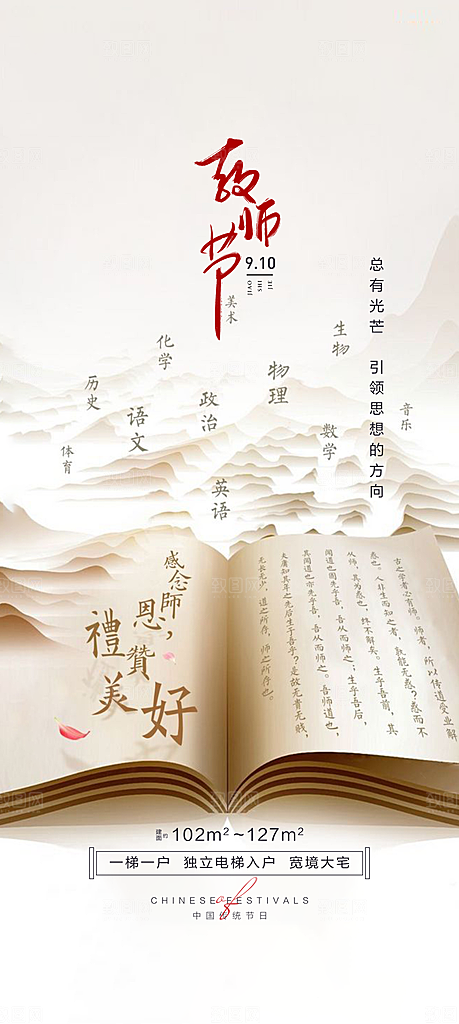 教师节
9.10
JIE
SHI
JIAO
总有光芒 引领思想的方向
美术
生物
化学
物理
历史
政治
语文
音乐
数学
体育
英语
感念師恩，
禮贊
美好
古之学者必有师。师者，所以传道受业解
惑也。人非生而知之者，孰能无惑？惑而不
从师，其为惑也，终不解矣。生乎吾前，其
闻道也固先乎吾，吾从而师之；生乎吾后，
其闻道也亦先乎吾，吾从而师之。吾师道也，
夫庸知其年之先后生于吾乎？是故无贵无贱，
无长无少，道之所存，师之所存也。
建面约 102m²~127m²
一梯一户 独立电梯入户 宽境大宅
CHINESE of FESTIVALS
中国传统节日